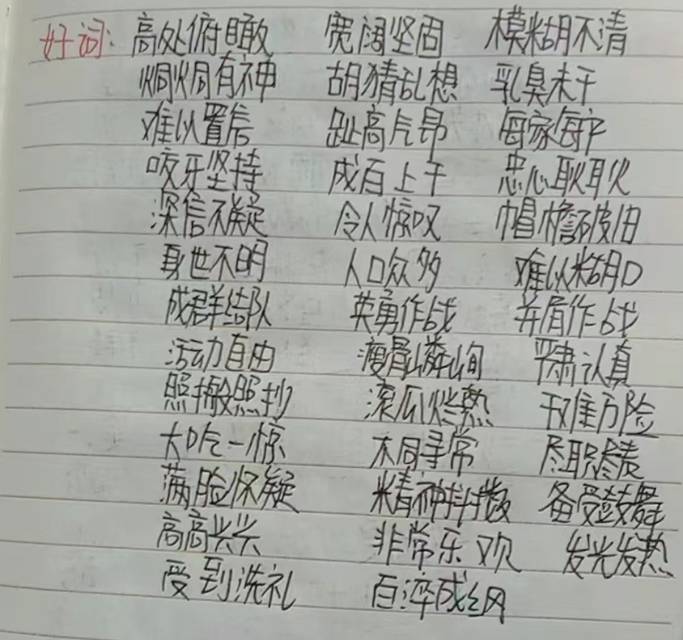 好词: 高处俯瞰 宽阔坚固 模糊不清
炯炯有神 胡猜乱想 乳臭未干
难以置信 趾高气昂 每家每户
咬牙坚持 成百上千 忠心耿耿
深信不疑 令人惊叹 帽檐破旧
身世不明 人口众多 难以糊口
成群结队 英勇作战 并肩作战
活动自由 瘦骨嶙峋 严肃认真
照搬照抄 滚瓜烂熟 千难万险
大吃一惊 不同寻常 尽职尽责
满脸怀疑 精神抖擞 备受鼓舞
高高兴兴 非常乐观 发光发热
受到洗礼 百淬成钢